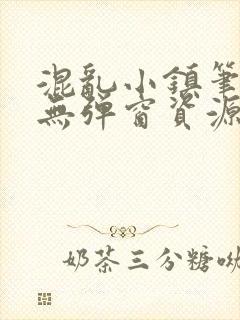 混亂小鎮筆
無彈窗資源
奶茶三分糖呦